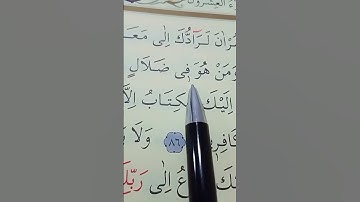 ءُ العِشْرُونَ
رْاٰنَ لَرَٓادُّكَ اِلٰى مَعَا
وَمَنْ هُوَ فٖى ضَلَالٍ
اِلَيْكَ الْكِتَابُ اِلَّا
كَافِرٖينَ ﴿٨٦﴾ وَلَا يَ
عُ اِلٰى رَبِّكَ